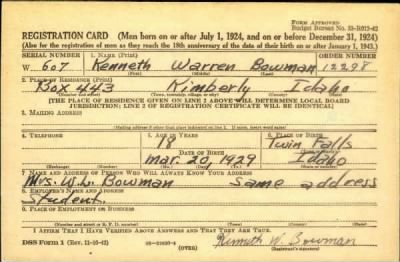 FORM APPROVED
Budget Bureau No. 33-R012-42
REGISTRATION CARD—(Men born on or after July 1, 1924, and on or before December 31, 1924)
(Also for the registration of men as they reach the 18th anniversary of the date of their birth on or after January 1, 1943.)
SERIAL NUMBER
1. NAME (Print)
ORDER NUMBER
W 607
Kenneth Warren Bowman
12298
(First) (Middle) (Last)
2. PLACE OF RESIDENCE (Print)
Box 443 Kimberly Idaho
(Number and street) (Town, township, village, or city) (County) (State)
[THE PLACE OF RESIDENCE GIVEN ON LINE 2 ABOVE WILL DETERMINE LOCAL BOARD
JURISDICTION; LINE 2 OF REGISTRATION CERTIFICATE WILL BE IDENTICAL]
3. MAILING ADDRESS
[Mailing address if other than place indicated on line 2. If same, insert word same]
4. TELEPHONE
5. AGE IN YEARS
6. PLACE OF BIRTH
18
Twin Falls
DATE OF BIRTH
Mar. 20, 1929
Idaho
(Exchange) (Number) (Mo.) (Day) (Yr.) (State or country)
7. NAME AND ADDRESS OF PERSON WHO WILL ALWAYS KNOW YOUR ADDRESS
Mrs. W. L. Bowman Same address
8. EMPLOYER'S NAME AND ADDRESS
Student
9. PLACE OF EMPLOYMENT OR BUSINESS
(Number and street or R. F. D. number) (Town) (County) (State)
I AFFIRM THAT I HAVE VERIFIED ABOVE ANSWERS AND THAT THEY ARE TRUE.
DSS Form 1 (Rev. 11-16-42)
(OVER)
Kenneth W. Bowman
(Registrant's signature)